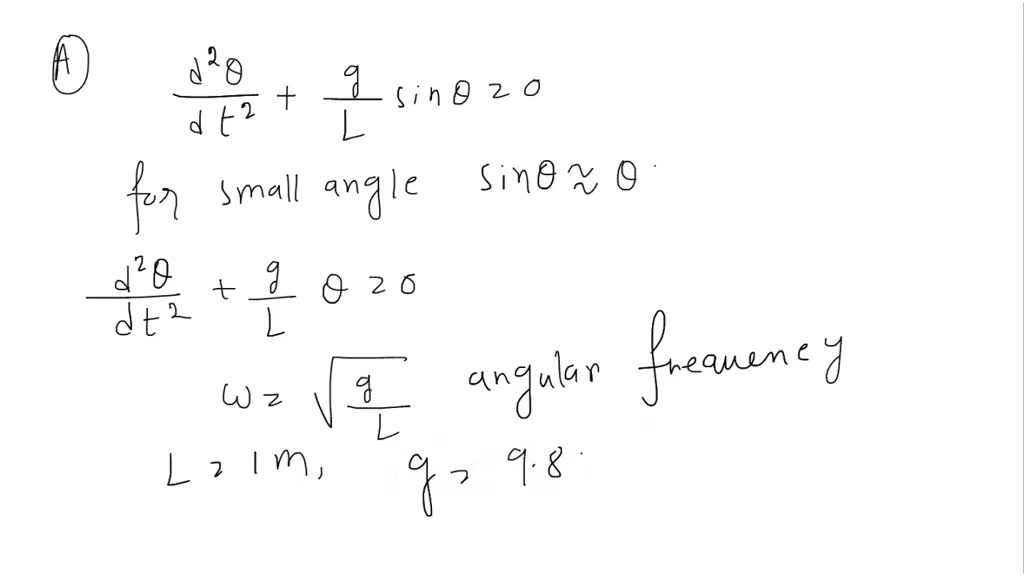 A
d²θ/dt² + g/L sinθ = 0
for small angle sinθ ≈ θ
d²θ/dt² + g/L θ = 0
ω = √(g/L) angular frequency
L = 1 m, g = 9.8